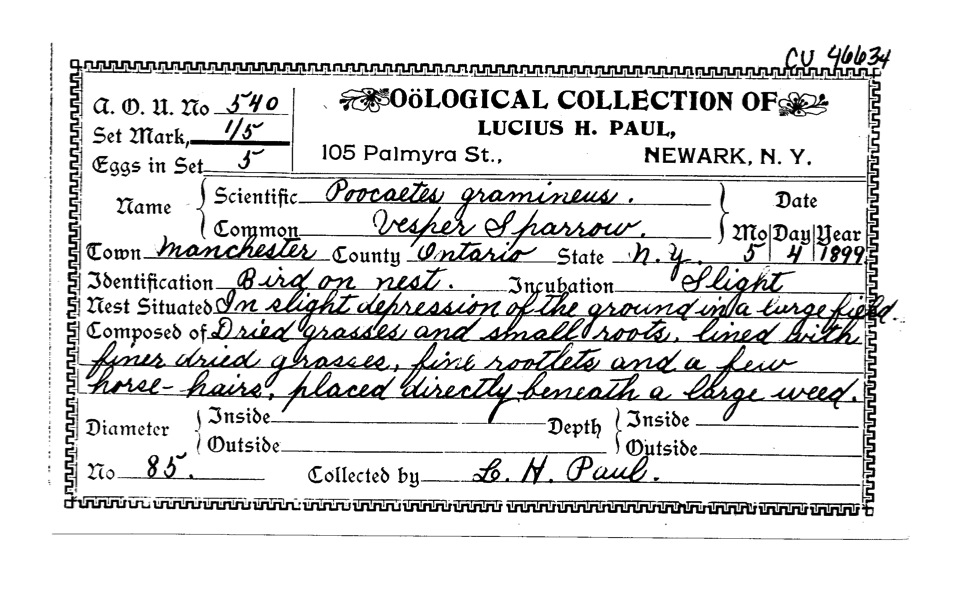 CU 46634
A. O. U. No 540
OöLOGICAL COLLECTION OF
Set Mark, 1/5
LUCIUS H. PAUL,
Eggs in Set 5
105 Palmyra St., NEWARK, N. Y.
Name Scientific Poocaetes gramineus. Date
Common Vesper Sparrow. Mo Day Year
Town Manchester County Ontario State N. Y. 5 4 1899
Identification Bird on nest. Incubation Slight
Nest Situated In slight depression of the ground in a large field.
Composed of Dried grasses and small roots, lined with
finer dried grasses, fine rootlets and a few
horse-hairs, placed directly beneath a large weed.
Diameter Inside Depth Inside
Outside Outside
No 85. Collected by L. H. Paul.